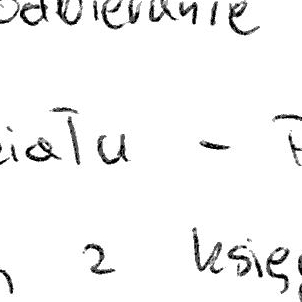 odbieranie
ciału -
z księg